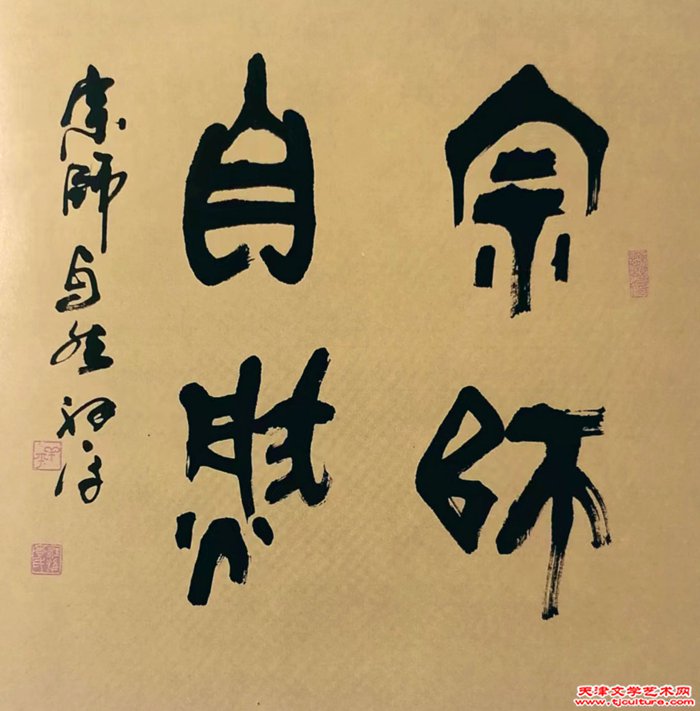 宗師
自然
宗師自然
天津文学艺术网
www.tjculture.com